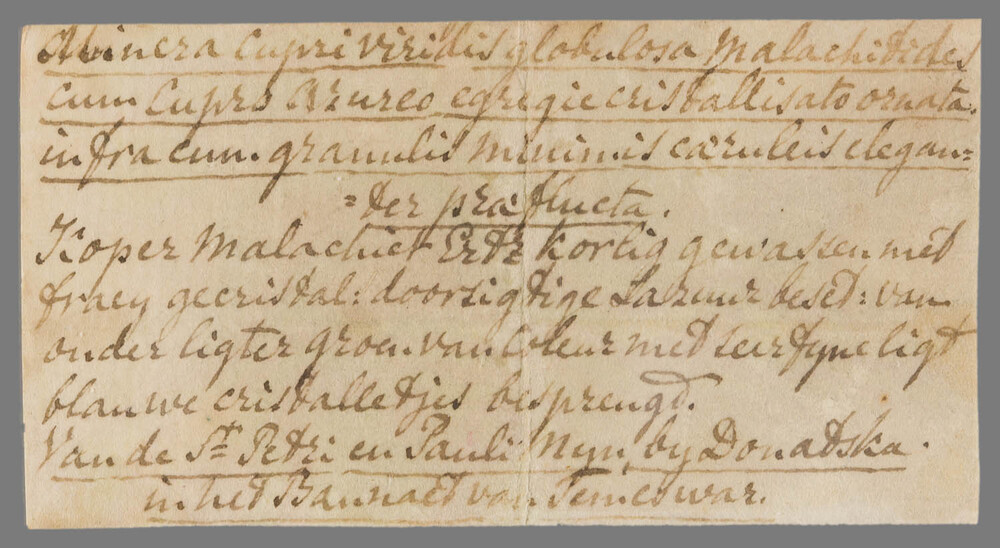 Minera Cupri viridis globulosa Malachitides
cum Cupro Azureo egregie cristallisato ornata.
infra cum. granulis minimis cæruleis elegan=
=ter præflucta.
Koper Malachiet Ertz kortig gewassen met
fraey gecristal: doorsigtige Lazuur beset: van
onder ligter groen van Coleur met seer fyne ligt
blauwe cristalletjes besprengd.
Van de St. Petri en Pauli Myn, by Donatska.
in het Bannaet van Temeswar.